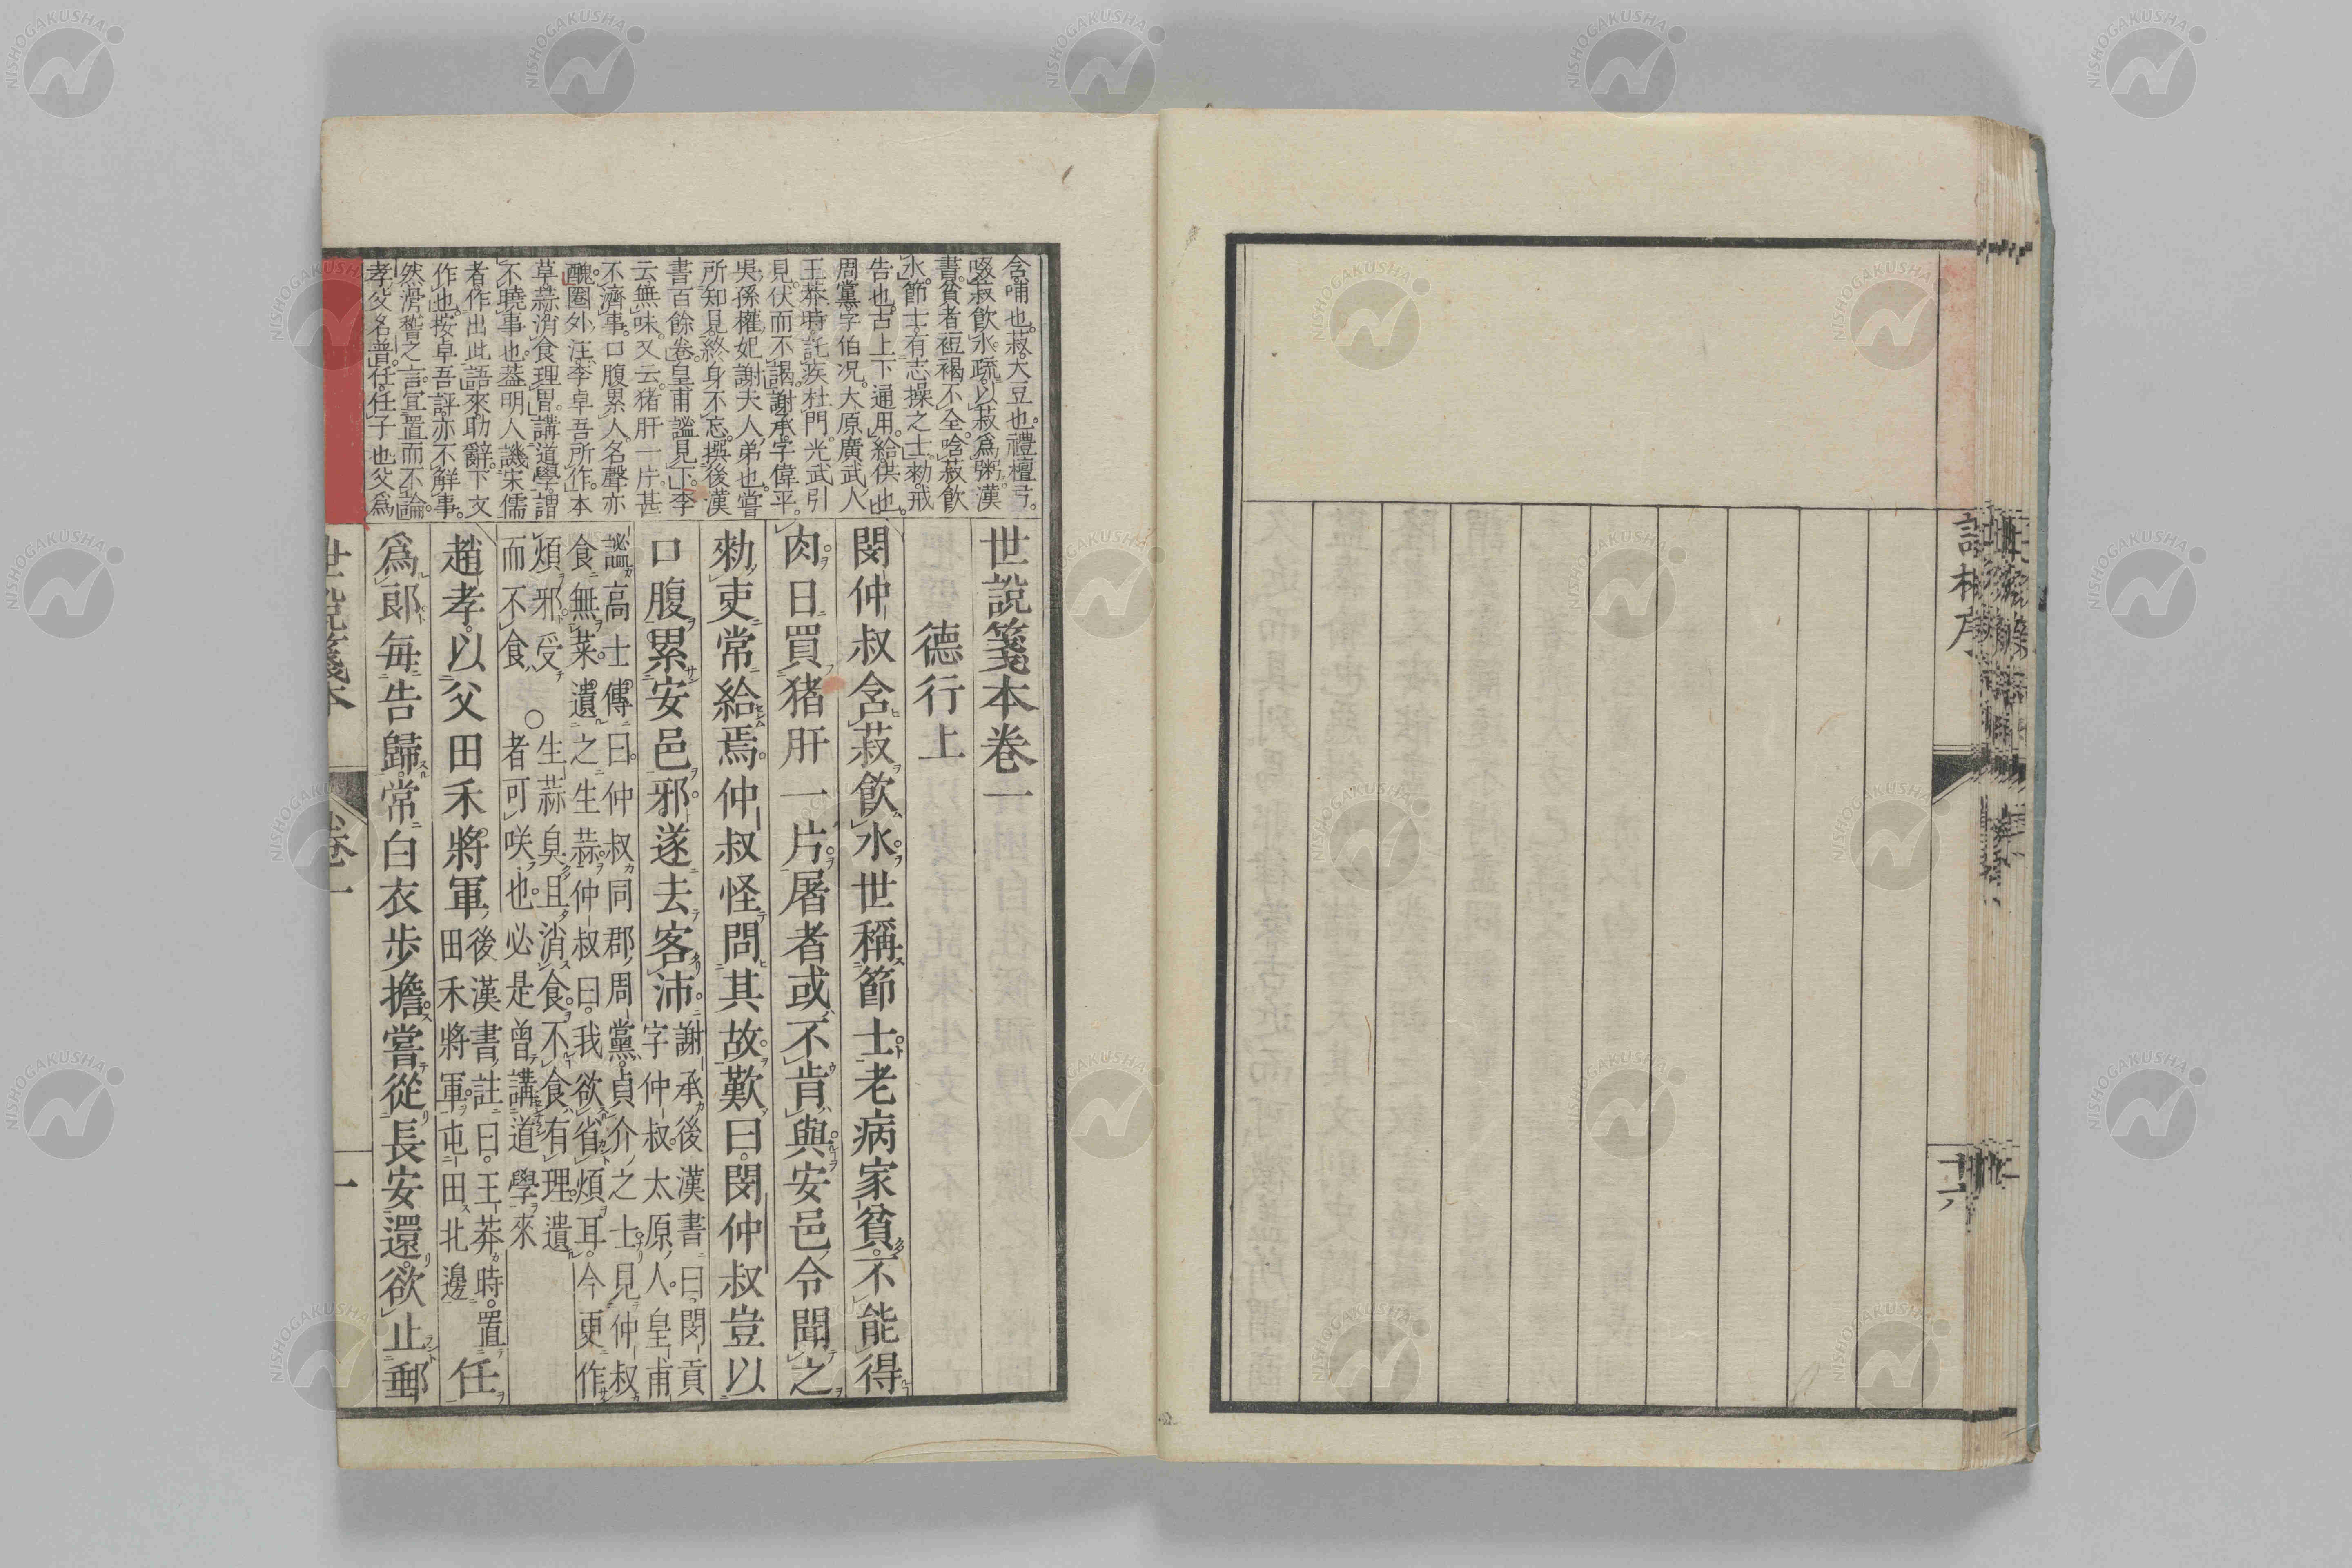 含哺也。菽大豆也。禮檀弓。
啜菽飲水。疏。以菽爲粥。漢
書。貧者裋褐不全。唅菽飮
水。節士有志操之士。勑戒
告也。古上下通用。給供也。
周黨字伯况。大原廣武人。
王莽時。託疾杜門。光武引
見。伏而不謁。謝承字偉平。
吳孫權妃謝夫人弟也。嘗
所知見。終身不忘。撰後漢
書百餘卷。皇甫謐見下。李
云。無味。又云。猪肝一片。甚
不濟事。口腹累人。名聲亦
醜。圈外注。李卓吾所作。本
草。蒜消食理胃。講道學謂
不曉事也。葢明人譏宋儒
者。作出此語來助辭。下文
作也。按卓吾評亦不解事。
然滑稽之言。宜置而不論。
孝父名普。任任子也。父爲
世說箋本卷一
德行上
閔仲叔含菽飮水。世稱節士。老病家貧。不能得
肉。日買猪肝一片。屠者或不肯與。安邑令聞之
勑吏常給焉。仲叔怪問其故。歎曰。閔仲叔豈以
口腹累安邑邪。遂去客沛。
謝承後漢書曰。閔貢
字仲叔。太原人。皇甫
謐高士傳曰。仲叔同郡周黨。貞介之士。見仲叔
食無菜。遺之生蒜。仲叔曰。我欲省煩耳。今更作
煩邪。受
而不食
○
生蒜臭。且消食。不食有理。遺
者可咲也。必是曾講道學來
趙孝。以父田禾將軍。
後漢書註曰。王莽時。置
田禾將軍。屯田北邊
任
爲郞。每告歸。常白衣步擔。嘗從長安還。欲止郵
世說箋本
卷一
一
NISHOGAKUSHA